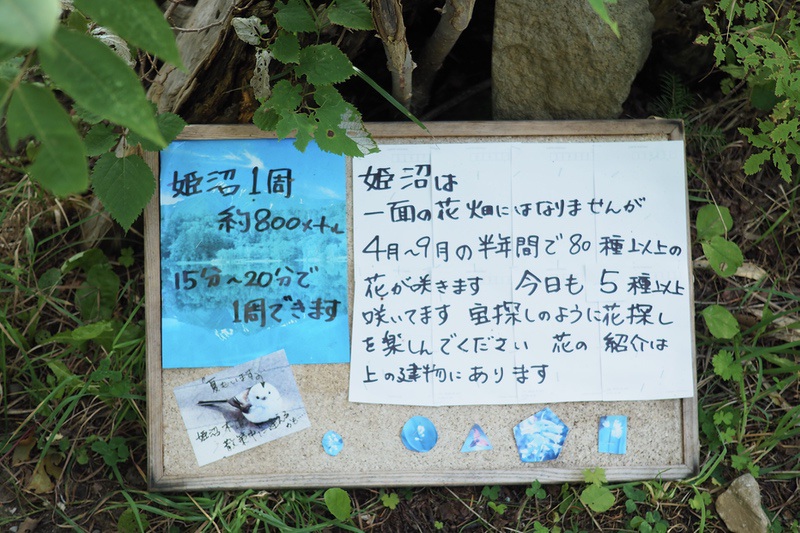 姫沼1周
約800メートル
15分~20分で
1周できます
姫沼は
一面の花畑にはなりませんが
4月~9月の半年間で80種以上の
花が咲きます 今日も5種以上
咲いてます 宝探しのように花探し
を楽しんでください 花の紹介は
上の建物にあります
夏もいますの
姫沼